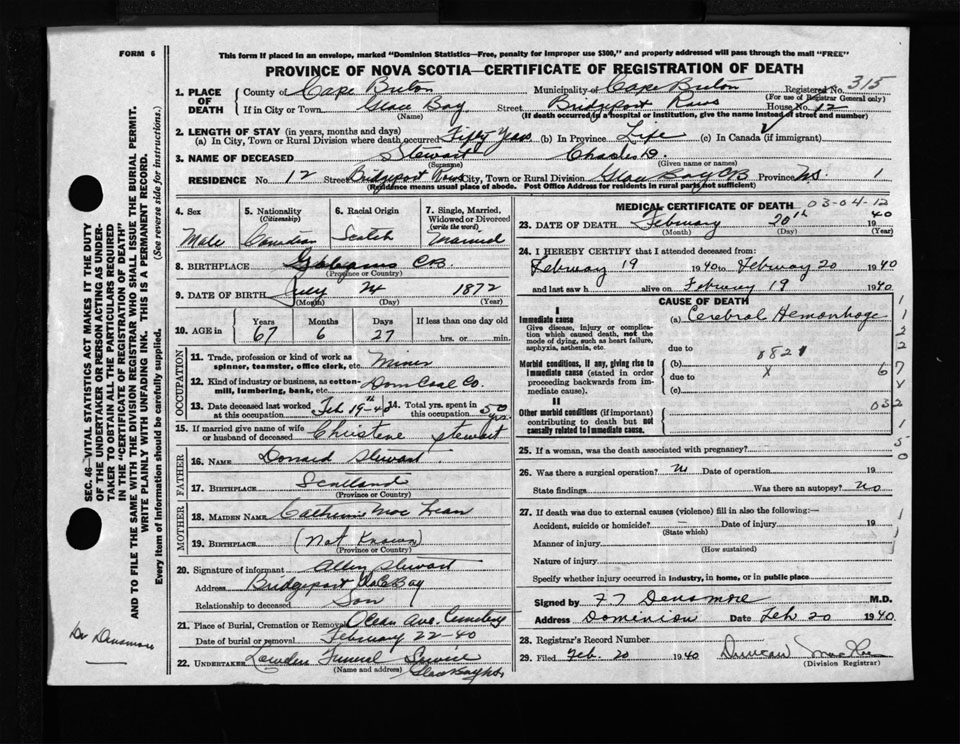 FORM 6
This form if placed in an envelope, marked "Dominion Statistics—Free, penalty for improper use $300," and properly addressed will pass through the mail "FREE"
PROVINCE OF NOVA SCOTIA—CERTIFICATE OF REGISTRATION OF DEATH
1. PLACE OF DEATH
County of Cape Breton Municipality of Cape Breton Registered No. 315
(For use of Registrar General only)
If in City or Town Glace Bay Street Bridgeport Rows House No. 12
(Name) (If death occurred in a hospital or institution, give the name instead of street and number)
2. LENGTH OF STAY (in years, months and days)
(a) In City, Town or Rural Division where death occurred Fifty Years (b) In Province Life (c) In Canada (if immigrant)
3. NAME OF DECEASED Stewart Charles D.
(Surname) (Given name or names)
RESIDENCE No. 12 Street Bridgeport Rows City, Town or Rural Division Glace Bay CB Province N.S. 1
(Residence means usual place of abode. Post Office Address for residents in rural parts not sufficient)
4. Sex
Male
5. Nationality
(Citizenship)
Canadian
6. Racial Origin
Scotch
7. Single, Married, Widowed or Divorced
(write the word)
Married
8. BIRTHPLACE Gabarus C.B.
(Province or Country)
9. DATE OF BIRTH July 24 1872
(Month) (Day) (Year)
10. AGE in
Years Months Days If less than one day old
67 6 27 hrs. or min.
OCCUPATION
11. Trade, profession or kind of work as spinner, teamster, office clerk, etc. Miner
12. Kind of industry or business, as cotton-mill, lumbering, bank, etc. Dom Coal Co.
13. Date deceased last worked at this occupation Feb 19th 40
14. Total yrs. spent in this occupation 50 yrs.
15. If married give name of wife or husband of deceased Christene Stewart
FATHER
16. NAME Donald Stewart
17. BIRTHPLACE Scotland
(Province or Country)
MOTHER
18. MAIDEN NAME Catherine MacLean
19. BIRTHPLACE (Not Known)
(Province or Country)
20. Signature of informant Allen Stewart
Address Bridgeport Glace Bay
Relationship to deceased Son
21. Place of Burial, Cremation or Removal Ocean Ave. Cemetery
Date of burial or removal February 22-40
22. UNDERTAKER Funeral Service
(Name and address) Glace Bay N.S.
MEDICAL CERTIFICATE OF DEATH 03-04-12
23. DATE OF DEATH February 20th 1940
(Month) (Day) (Year)
24. I HEREBY CERTIFY that I attended deceased from:
February 19 1940 to February 20 1940
and last saw h alive on February 19 1940
CAUSE OF DEATH
I
Immediate cause (a) Cerebral Hemorrhage
Give disease, injury or complication which caused death, not the mode of dying, such as heart failure, asphyxia, asthenia, etc.
due to
Morbid conditions, if any, giving rise to immediate cause (stated in order proceeding backwards from immediate cause).
(b)
due to
(c)
II
Other morbid conditions (if important) contributing to death but not causally related to immediate cause.
25. If a woman, was the death associated with pregnancy?
26. Was there a surgical operation? Date of operation 19
State findings Was there an autopsy? No
27. If death was due to external causes (violence) fill in also the following:—
Accident, suicide or homicide? — Date of injury 19
(State which)
Manner of injury
(How sustained)
Nature of injury
Specify whether injury occurred in industry, in home, or in public place
Signed by Densmore M.D.
Address Dominion Date Feb 20 1940
28. Registrar's Record Number
29. Filed Feb. 20 1940 Duncan
(Division Registrar)
SEC. 46—VITAL STATISTICS ACT MAKES IT THE DUTY
OF THE UNDERTAKER OR PERSON ACTING AS UNDER-
TAKER TO OBTAIN ALL THE PARTICULARS REQUIRED
IN THE "CERTIFICATE OF REGISTRATION OF DEATH"
AND TO FILE THE SAME WITH THE DIVISION REGISTRAR WHO SHALL ISSUE THE BURIAL PERMIT.
WRITE PLAINLY WITH UNFADING INK. THIS IS A PERMANENT RECORD.
Every item of Information should be carefully supplied. (See reverse side for instructions.)
Dr Densmore